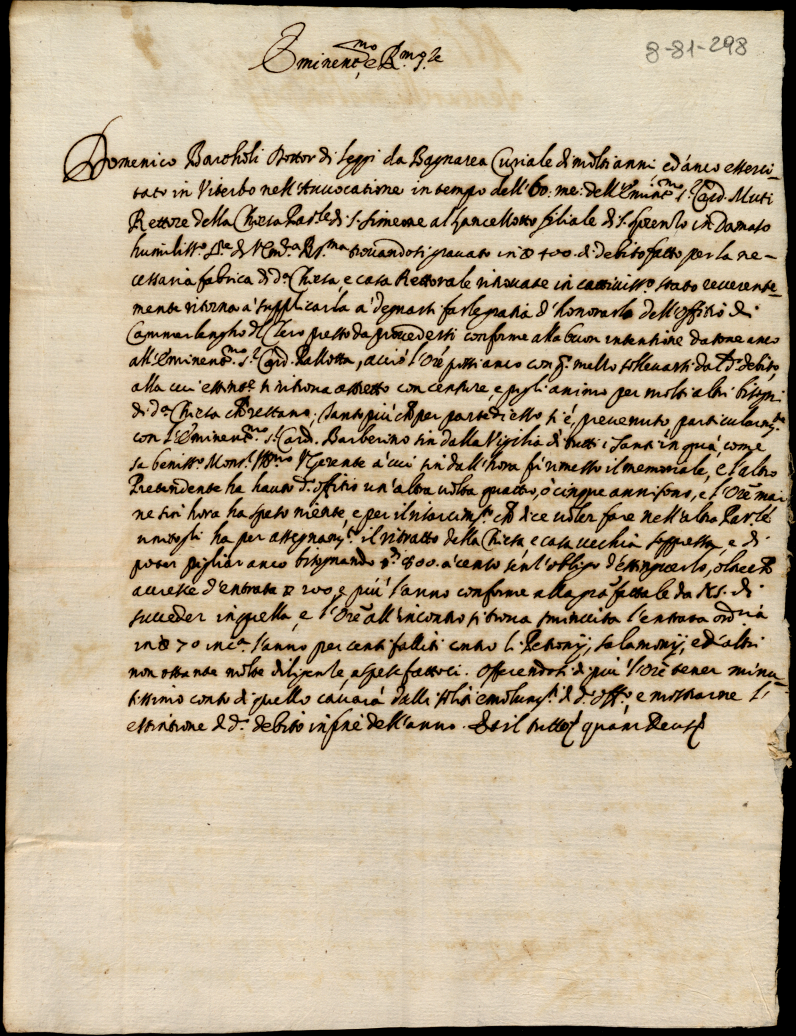 8-81-298
Eminent.mo e R.mo S.re
Domenico Bartholi Dottor di leggi da Bagnarea Curiale di molti anni, ed'anco esserci-
tato in Viterbo nell'Auuocatione in tempo dell'bo: me: dell'Emin.mo S.r Card. Muti
Rettore della Chiesa Par.le di S. Simeone al Lancellotto filiale di S. Lorenzo in Damaso
humiliss.o Ser.re di V. Em.za R.ma trouandosi grauato in 400. di debito fatto per la ne-
cessaria fabrica di d.a Chiesa, e casa Rettorale ritrouate in cattiuiss.o stato reuerente-
mente ritorna à supplicarla à degnarsi farle gratia d'honorarlo dell'Offitio di
Cammerlengho del Clero presto da prouedersi conforme alla buon intentione datone anco
all'Eminent.mo S.r Card. Pallotta, acciò l'Ore possi anco con q.o mezzo solleuarsi da d.o debito,
alla cui estint.e si ritroua astretto con censure, e pigli animo per molti altri bisogni
di d.a Chiesa che restano, tanto più che per parte di esso si è preuenuto, particularm.te
con l'Eminent.mo S.r Card. Barberino sin dalla Vigilia di tutti i Santi in quà, come
sa beniss.o Mons.r Ill.mo V.Gerente à cui sin dall'hora fù rimesso il memoriale, e l'altro
Pretendente ha hauto d.o offitio un'altra uolta quattro, ò cinque anni sono, e l'Ore mai
ne sin hora ha hauto niente, e per il risarcim.to che dice uoler fare nell'altra Par.le
uuotogli ha per assegnam.to il ritratto della Chiesa e casa uecchia soppressa, e di
poter pigliar anco bisognando 800. à censo sen l'obligo d'estinguerlo, oltre che
accresce d'entrata 200, e più l'anno conforme alla gra fattale da N.S. di
succeder in quella, e l'Ore all'incontro si troua sminuita l'entrata ord.ria
in 70 in c.a l'anno per censi falliti contro li Petronij, Salamonij, ed'altri
non ostante molte diligenze, e spese fatteci. Offerendosi di più l'Ore tener minu-
tissimo conto di quello cauarà dalli soliti emolum.ti di d.o off.o, e mostrarne l'
estintione di d.o debito infine dell'anno. Et il tutto quam Deus